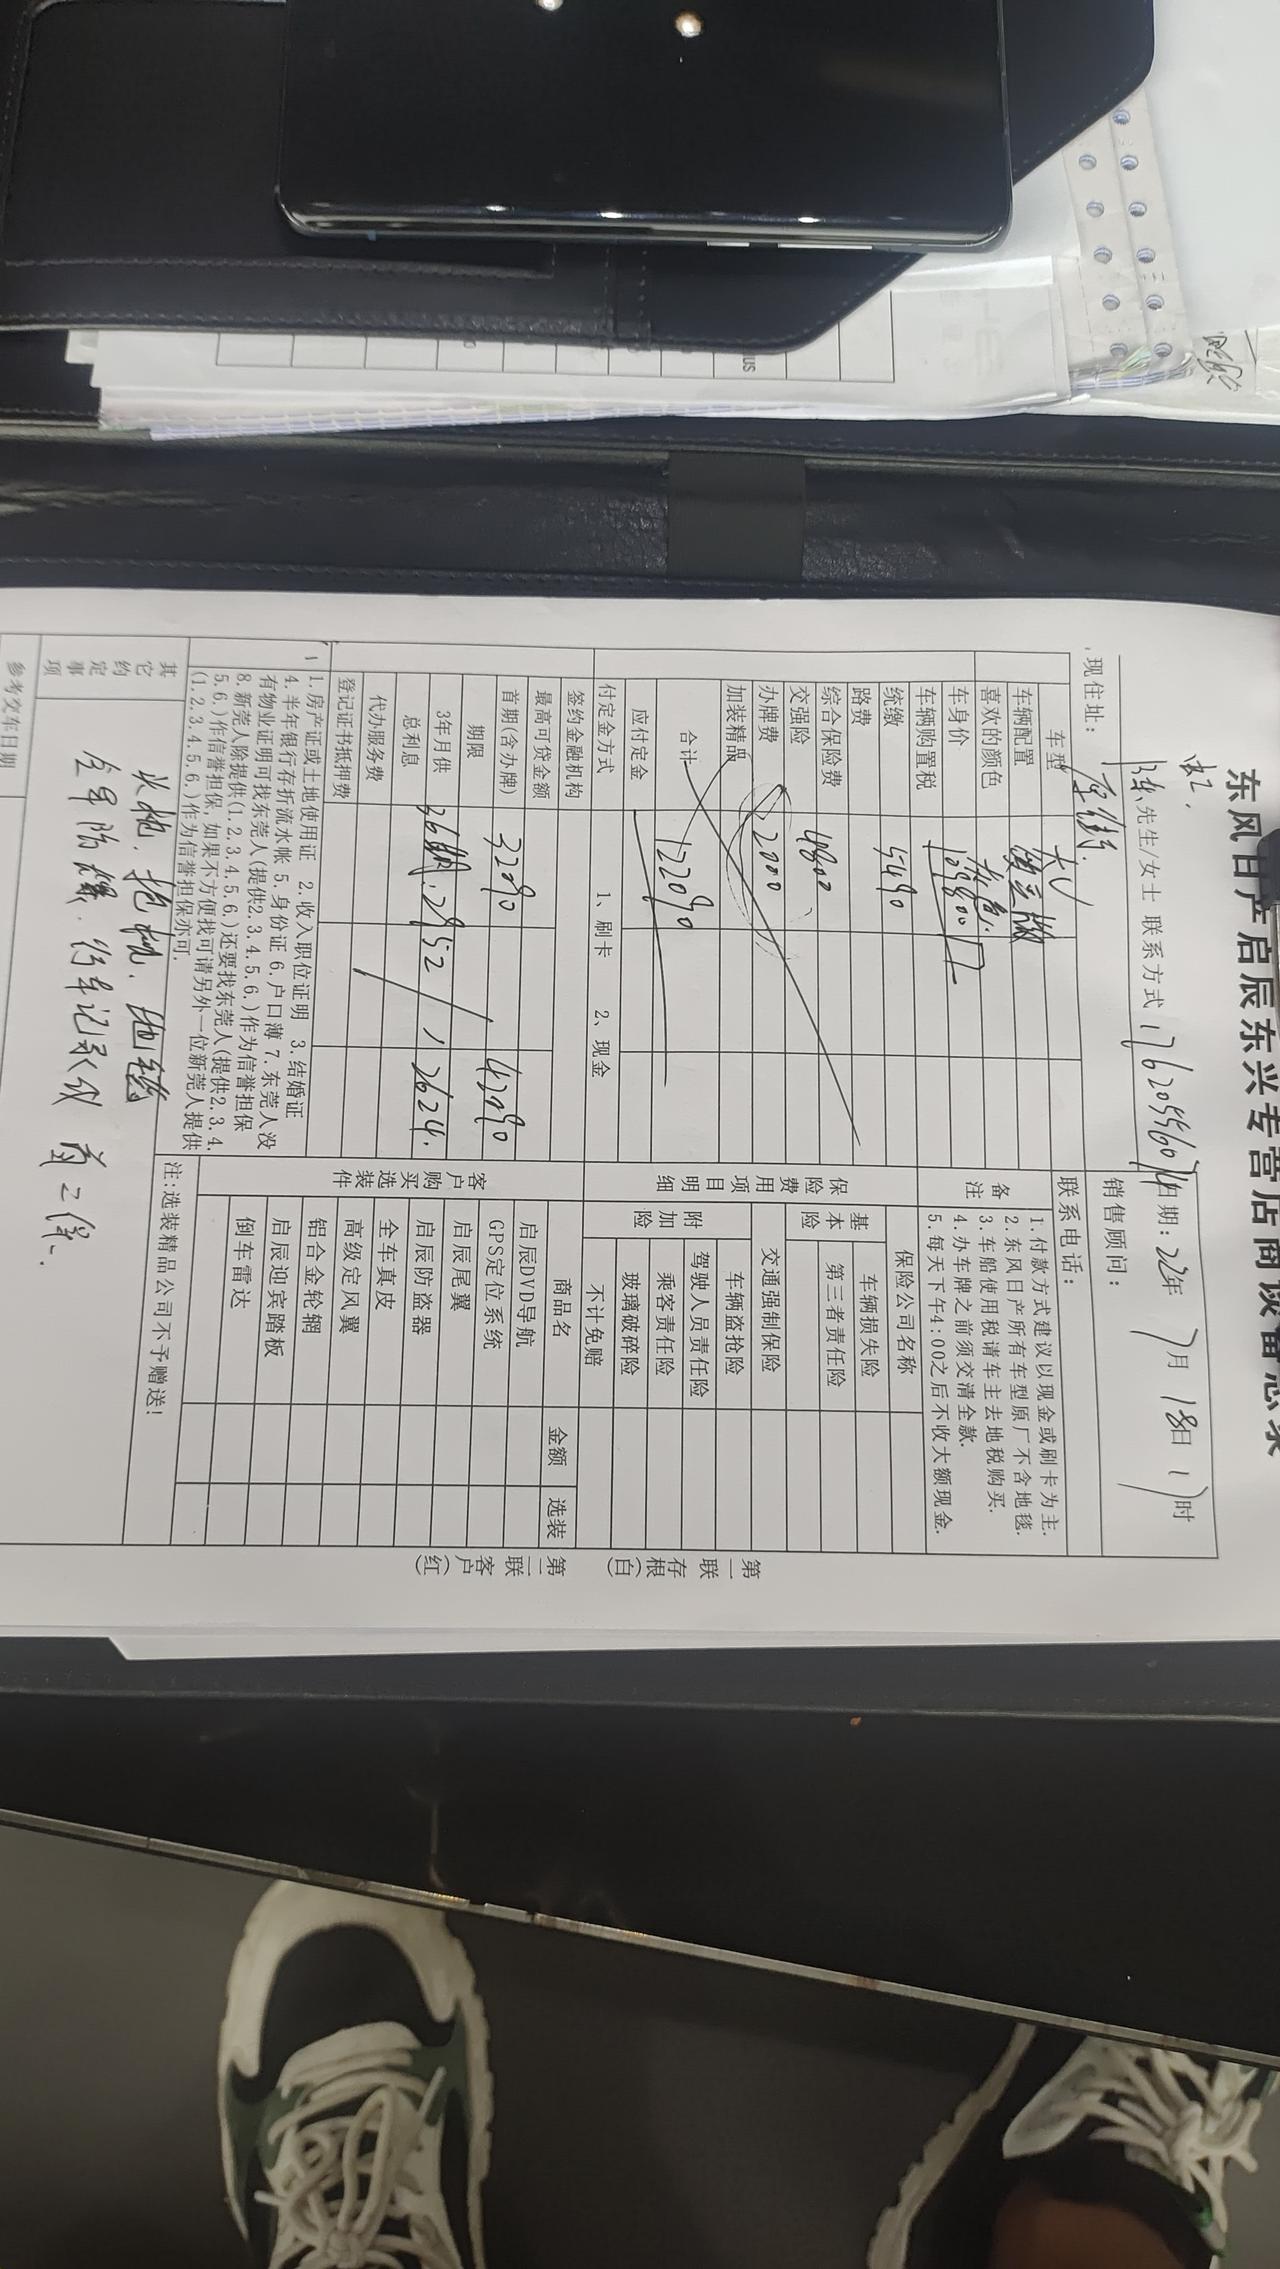 东风日产启辰东兴专营店商谈备忘录
先生/女士 联系方式 日期: 22年 7月 18日 17时
现住址: 厚街 销售顾问:
车型 大V 联系电话:
车辆配置
喜欢的颜色
车身价 109800
车辆购置税
统缴 5490
路费
综合保险费 4800
交强险
办牌费 2000
加装精品
合计 122090
应付定金
付定金方式 1、刷卡 2、现金
签约金融机构
最高可贷金额
首期(含办牌) 32090 42090
期限
3年月供 36期. 2952 2624.
总利息
代办服务费
登记证书抵押费
1.房产证或土地使用证 2.收入职位证明 3.结婚证
4.半年银行存折流水帐 5.身份证 6.户口薄 7.东莞人没
有物业证明可找东莞人(提供2.3.4.5.6.)作为信誉担保
8.新莞人除提供(1.2.3.4.5.6.)还要找东莞人(提供2.3.4.
5.6.)作信誉担保,如果不方便找可请另外一位新莞人提供
(1.2.3.4.5.6.)作为信誉担保亦可.
备注
1.付款方式建议以现金或刷卡为主.
2.东风日产所有车型原厂不含地毯.
3.车船使用税请车主去地税购买.
4.办车牌之前须交清全款.
5.每天下午4:00之后不收大额现金.
保险费用项目明细
保险公司名称
基本险
车辆损失险
第三者责任险
交通强制保险
附加险
车辆盗抢险
驾驶人员责任险
乘客责任险
玻璃破碎险
不计免赔
客户购买选装件
商品名 金额 选装
启辰DVD导航
GPS定位系统
启辰尾翼
启辰防盗器
全车真皮
高级定风翼
铝合金轮辋
启辰迎宾踏板
倒车雷达
注:选装精品公司不予赠送!
其它约定事项
头枕. 抱枕. 地毯
全车防爆. 行车记录仪 首二保.
参考交车日期
第一联 存根(白)
第二联 客户(红)